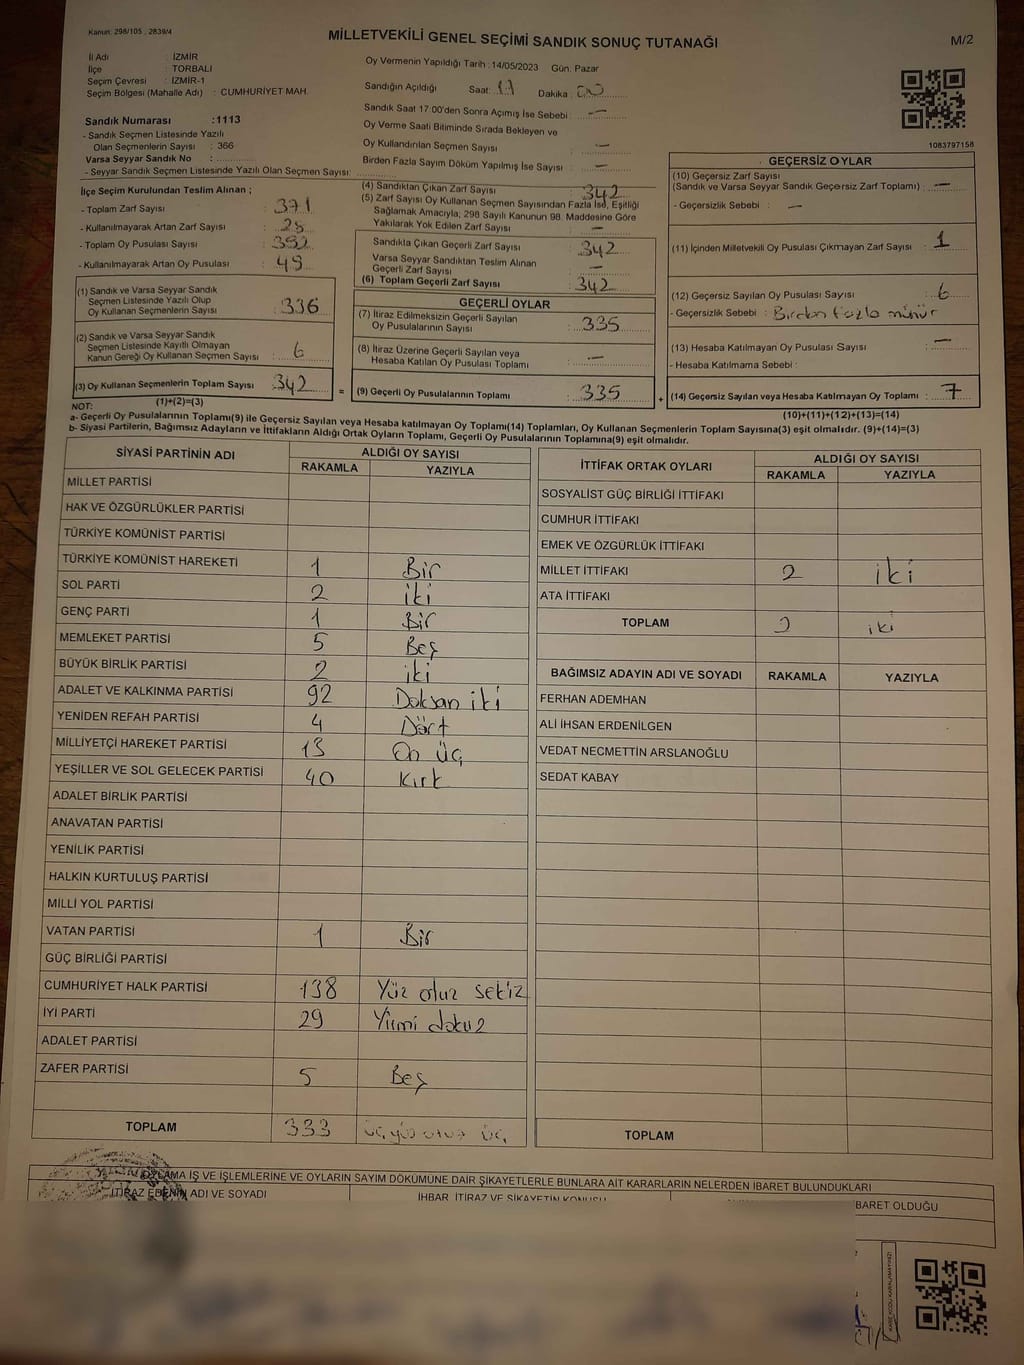 Kanun: 298/105 , 2839/4
MİLLETVEKİLİ GENEL SEÇİMİ SANDIK SONUÇ TUTANAĞI
M/2
İl Adı : İZMİR
İlçe : TORBALI
Seçim Çevresi : İZMİR-1
Seçim Bölgesi (Mahalle Adı) : CUMHURİYET MAH.
Sandık Numarası :1113
- Sandık Seçmen Listesinde Yazılı
Olan Seçmenlerin Sayısı : 366
Varsa Seyyar Sandık No :
- Seyyar Sandık Seçmen Listesinde Yazılı Olan Seçmen Sayısı:
Oy Vermenin Yapıldığı Tarih : 14/05/2023 Gün: Pazar
Sandığın Açıldığı Saat: 17 Dakika : 00
Sandık Saat 17:00'den Sonra Açımış İse Sebebi : —
Oy Verme Saati Bitiminde Sırada Bekleyen ve
Oy Kullandırılan Seçmen Sayısı : —
Birden Fazla Sayım Döküm Yapılmış İse Sayısı : —
1083797158
İlçe Seçim Kurulundan Teslim Alınan ;
- Toplam Zarf Sayısı : 371
- Kullanılmayarak Artan Zarf Sayısı :
- Toplam Oy Pusulası Sayısı :
- Kullanılmayarak Artan Oy Pusulası :
(1) Sandık ve Varsa Seyyar Sandık
Seçmen Listesinde Yazılı Olup
Oy Kullanan Seçmenlerin Sayısı : 336
(2) Sandık ve Varsa Seyyar Sandık
Seçmen Listesinde Kayıtlı Olmayan
Kanun Gereği Oy Kullanan Seçmen Sayısı : 6
(3) Oy Kullanan Seçmenlerin Toplam Sayısı : 342
(1)+(2)=(3)
(4) Sandıktan Çıkan Zarf Sayısı : 342
(5) Zarf Sayısı Oy Kullanan Seçmen Sayısından Fazla İse, Eşitliği
Sağlamak Amacıyla, 298 Sayılı Kanunun 98. Maddesine Göre
Yakılarak Yok Edilen Zarf Sayısı : —
Sandıkta Çıkan Geçerli Zarf Sayısı : 342
Varsa Seyyar Sandıktan Teslim Alınan
Geçerli Zarf Sayısı : —
(6) Toplam Geçerli Zarf Sayısı : 342
GEÇERLİ OYLAR
(7) İtiraz Edilmeksizin Geçerli Sayılan
Oy Pusulalarının Sayısı : 335
(8) İtiraz Üzerine Geçerli Sayılan veya
Hesaba Katılan Oy Pusulası Toplamı : —
= (9) Geçerli Oy Pusulalarının Toplamı : 335
GEÇERSİZ OYLAR
(10) Geçersiz Zarf Sayısı
(Sandık ve Varsa Seyyar Sandık Geçersiz Zarf Toplamı) : —
- Geçersizlik Sebebi : —
(11) İçinden Milletvekili Oy Pusulası Çıkmayan Zarf Sayısı : 1
(12) Geçersiz Sayılan Oy Pusulası Sayısı : 6
- Geçersizlik Sebebi : Birden fazla mühür
(13) Hesaba Katılmayan Oy Pusulası Sayısı : —
- Hesaba Katılmama Sebebi :
+ (14) Geçersiz Sayılan veya Hesaba Katılmayan Oy Toplamı : 7
(10)+(11)+(12)+(13)=(14)
NOT:
a- Geçerli Oy Pusulalarının Toplamı(9) ile Geçersiz Sayılan veya Hesaba katılmayan Oy Toplamı(14) Toplamları, Oy Kullanan Seçmenlerin Toplam Sayısına(3) eşit olmalıdır. (9)+(14)=(3)
b- Siyasi Partilerin, Bağımsız Adayların ve İttifakların Aldığı Ortak Oyların Toplamı, Geçerli Oy Pusulalarının Toplamına(9) eşit olmalıdır.
SİYASİ PARTİNİN ADI ALDIĞI OY SAYISI
RAKAMLA YAZIYLA
MİLLET PARTİSİ
HAK VE ÖZGÜRLÜKLER PARTİSİ
TÜRKİYE KOMÜNİST PARTİSİ
TÜRKİYE KOMÜNİST HAREKETİ 1 Bir
SOL PARTİ 2 iki
GENÇ PARTİ 1 Bir
MEMLEKET PARTİSİ 5 Beş
BÜYÜK BİRLİK PARTİSİ 2 iki
ADALET VE KALKINMA PARTİSİ 92 Doksan iki
YENİDEN REFAH PARTİSİ 4 Dört
MİLLİYETÇİ HAREKET PARTİSİ 13 On üç
YEŞİLLER VE SOL GELECEK PARTİSİ 40 Kırk
ADALET BİRLİK PARTİSİ
ANAVATAN PARTİSİ
YENİLİK PARTİSİ
HALKIN KURTULUŞ PARTİSİ
MİLLİ YOL PARTİSİ
VATAN PARTİSİ 1 Bir
GÜÇ BİRLİĞİ PARTİSİ
CUMHURİYET HALK PARTİSİ 138 Yüz otuz sekiz
İYİ PARTİ 29 Yirmi dokuz
ADALET PARTİSİ
ZAFER PARTİSİ 5 Beş
TOPLAM 333 üç yüz otuz üç
İTTİFAK ORTAK OYLARI ALDIĞI OY SAYISI
RAKAMLA YAZIYLA
SOSYALİST GÜÇ BİRLİĞİ İTTİFAKI
CUMHUR İTTİFAKI
EMEK VE ÖZGÜRLÜK İTTİFAKI
MİLLET İTTİFAKI 2 iki
ATA İTTİFAKI
TOPLAM 2 iki
BAĞIMSIZ ADAYIN ADI VE SOYADI RAKAMLA YAZIYLA
FERHAN ADEMHAN
ALİ İHSAN ERDENİLGEN
VEDAT NECMETTİN ARSLANOĞLU
SEDAT KABAY
TOPLAM
İŞ VE İŞLEMLERİNE VE OYLARIN SAYIM DÖKÜMÜNE DAİR ŞİKAYETLERLE BUNLARA AİT KARARLARIN NELERDEN İBARET BULUNDUKLARI
İTİRAZ EDENİN ADI VE SOYADI İHBAR, İTİRAZ VE ŞİKAYETİN KONUSU BARET OLDUĞU